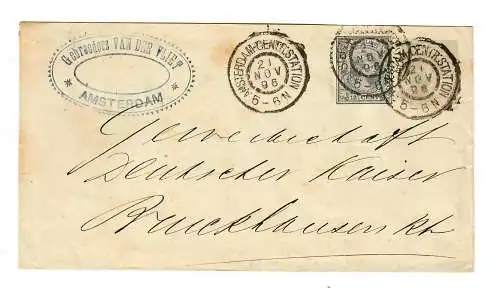 Gebroeders VAN DER VLIET
AMSTERDAM
AMSTERDAM-CENTLSTATION
21
NOV
96
5-6N
AMSTERDAM-CENTLSTATION
NOV
96
5-6N
Gewerkschaft
Deutscher Kaiser
Bruckhausen